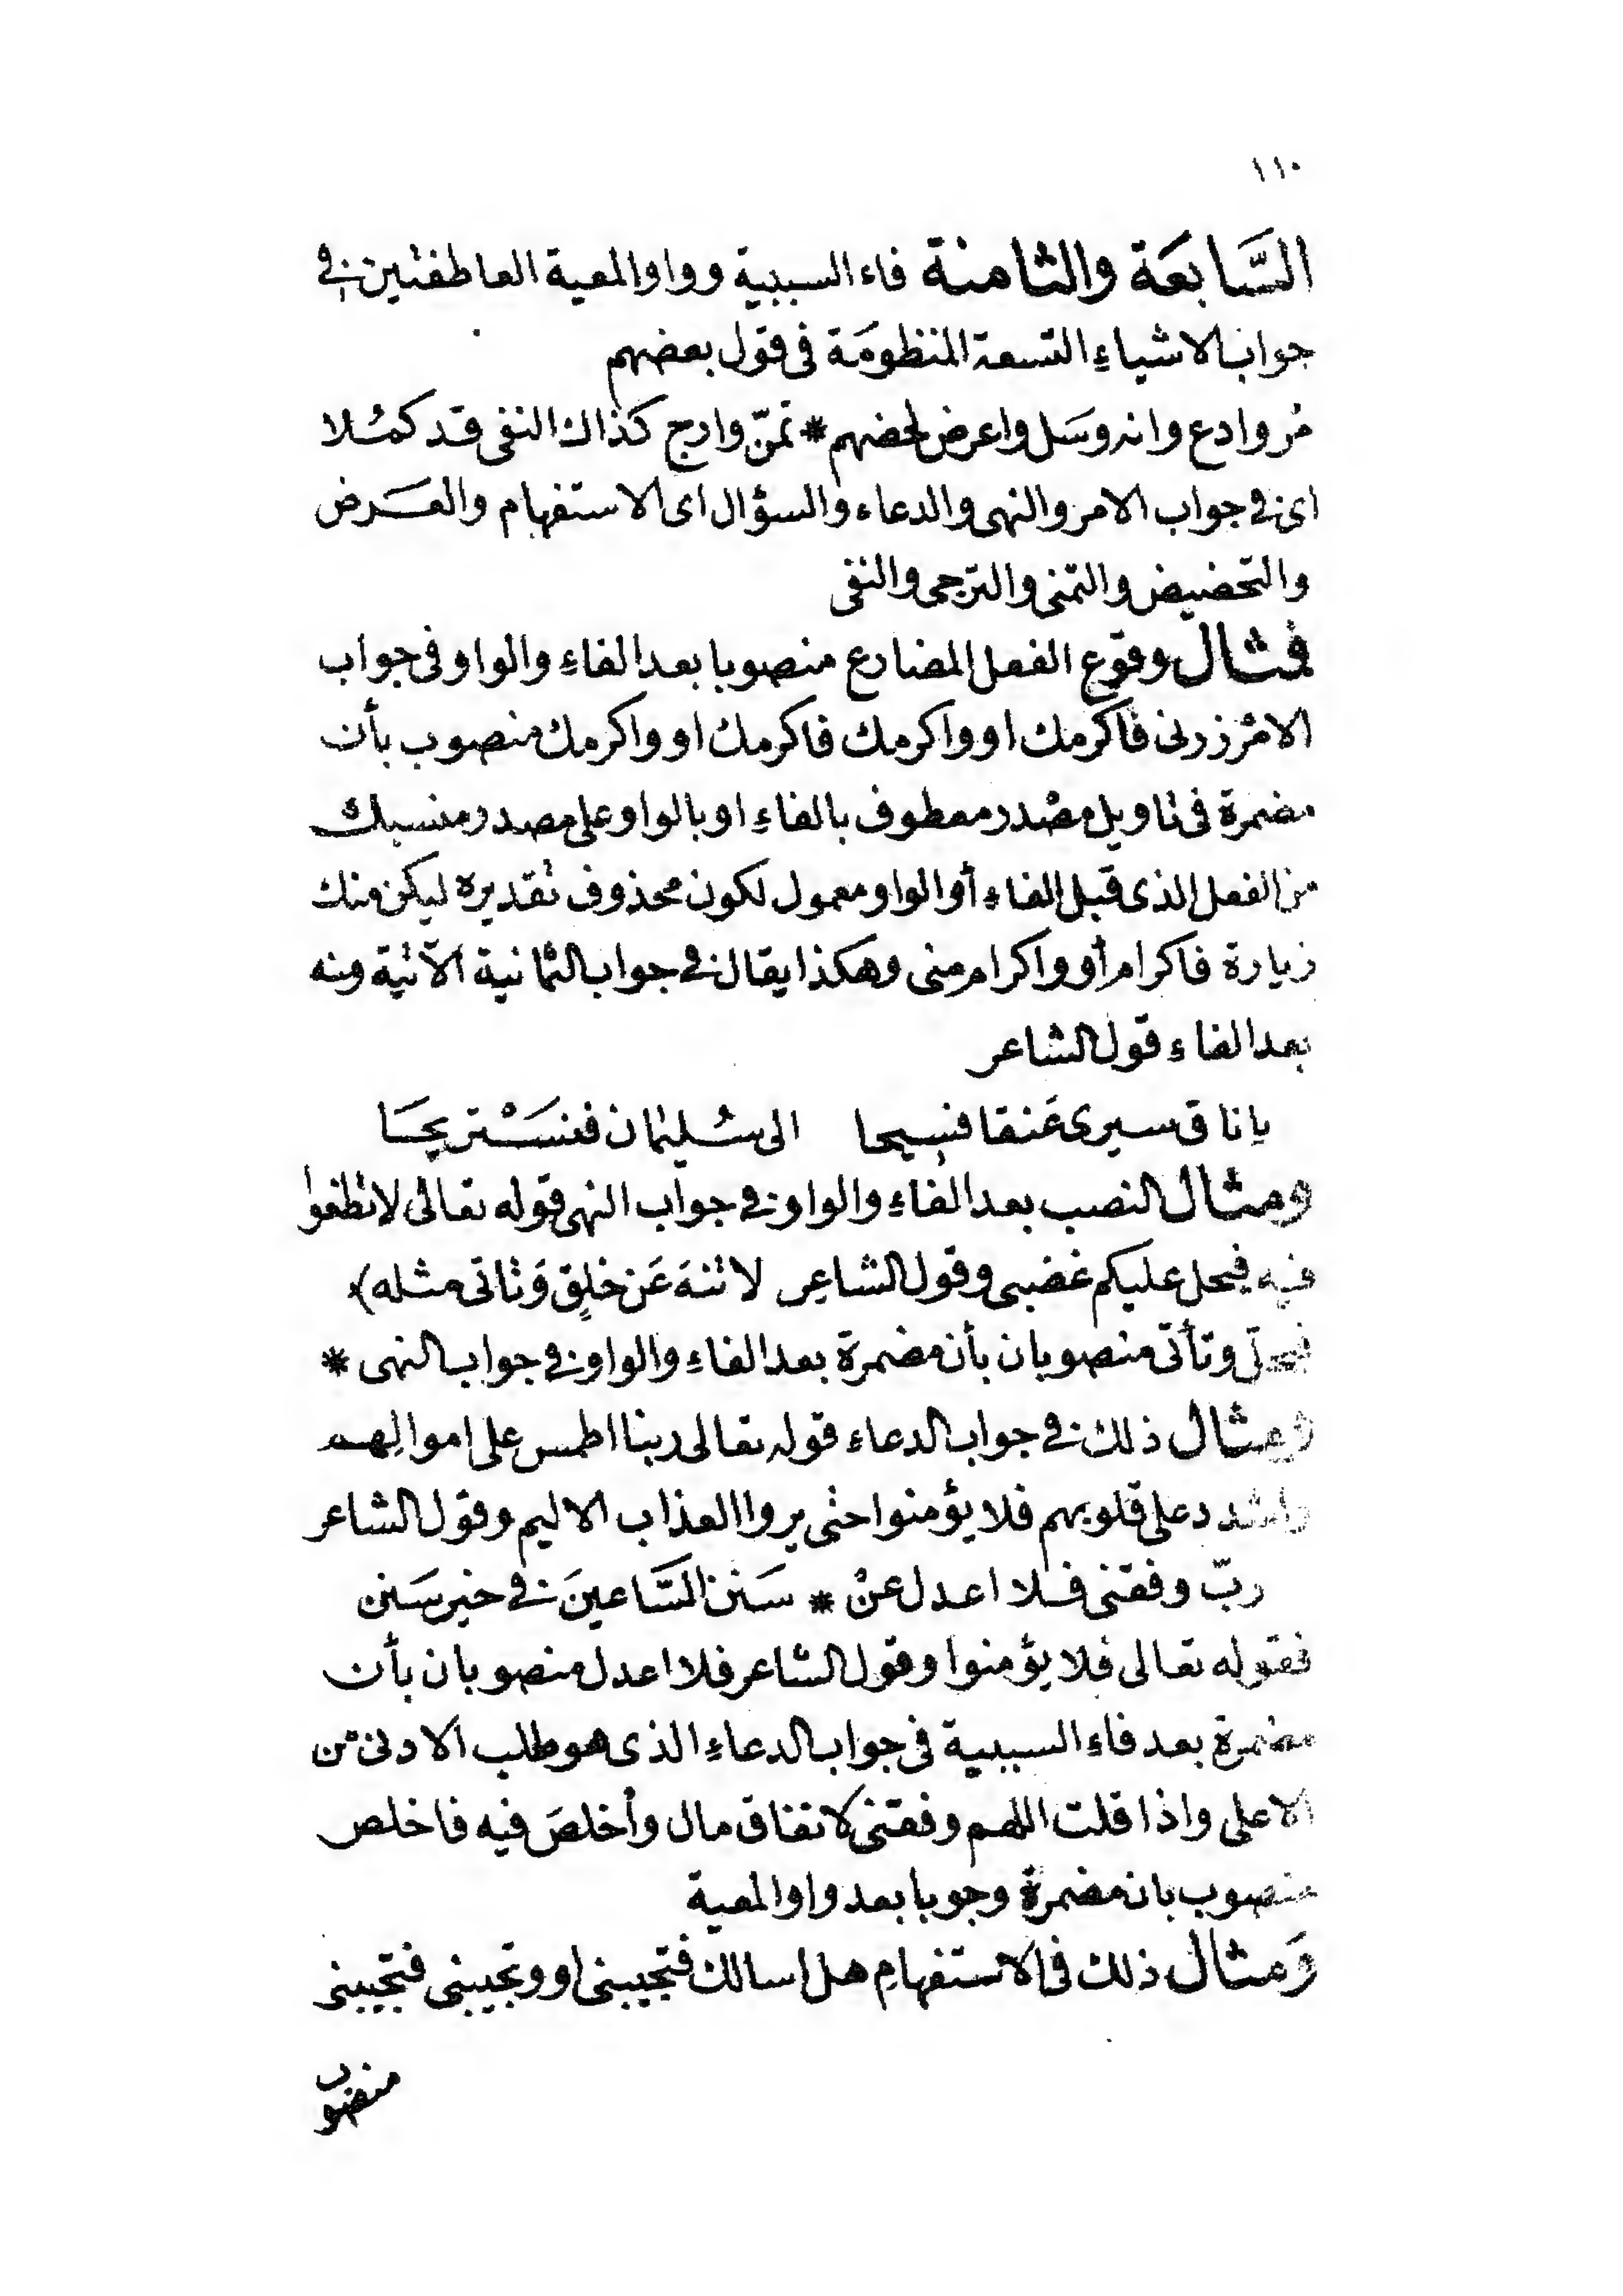 ١١٠
السَّابعَة والثامنة فاء السببية وواو المعية العاطفتين فى
جواب الاشياءِ التسعة المنظومَة فى قول بعضهم
مُر وادع وانه وسَل واعرض لحضهم * تمنّ وارج كذاك النفى قد كمُلا
اى فى جواب الامر والنهى والدعاء والسؤال اى الاستفهام والعَرض
والتحضيض والتمنى والترجى والنفى
فمثال وقوع الفعل المضارع منصوبا بعد الفاءِ والواو فى جواب
الامْر زرنى فاكرمك او واكرمك فاكرمك او واكرمك منصوب بأن
مضمرة فى تاويل مصْدر معطوف بالفاءِ او بالواو على مصدر منسبك
من الفعل الذى قبل الفاءِ أو الواو معمول لكون محذوف تقديره ليكن منك
زيارة فاكرام أو واكرام منى وهكذا يقال فى جواب الثمانية الآتية ومنه
بعد الفاء قول الشاعر
يا ناق سيرى عَنقا فسيحا الى سُليمان فنسَتْريحَا
ومثال النصب بعد الفاءِ والواو فى جواب النهى قوله تعالى لا تطغوا
فيه فيحل عليكم غضبى وقول الشاعِر لا تنهَ عَن خلِق وَتاتى مثله)
فيحل وتأتى منصوبان بأن مضمرة بعد الفاءِ والواو فى جواب النهى *
ومثال ذلك فى جواب الدعاء قوله تعالى ربنا اطمس على اموالِهم
واشدد على قلوبهم فلا يؤمنوا حتى يروا العذاب الاليم وقول الشاعر
ربّ وفقنى فلا اعدل عنْ * سَنن السَّاعينَ فى خير سَنن
فقوله تعالى فلا يؤمنوا وقول الشاعر فلا اعدل منصوبان بأن
مضمرة بعد فاءِ السببية فى جواب الدعاءِ الذى هو طلب الادنى من
الاعلى واذا قلت اللهم وفقنى لانفاق مال وأخلصَ فيه فاخلص
منصوب بان مضمرة وجوبا بعد واو المعية
وَمثال ذلك فى الاستفهامِ هل اسالك فتجيبنى او وتجيبنى فتجيبنى
منصوب